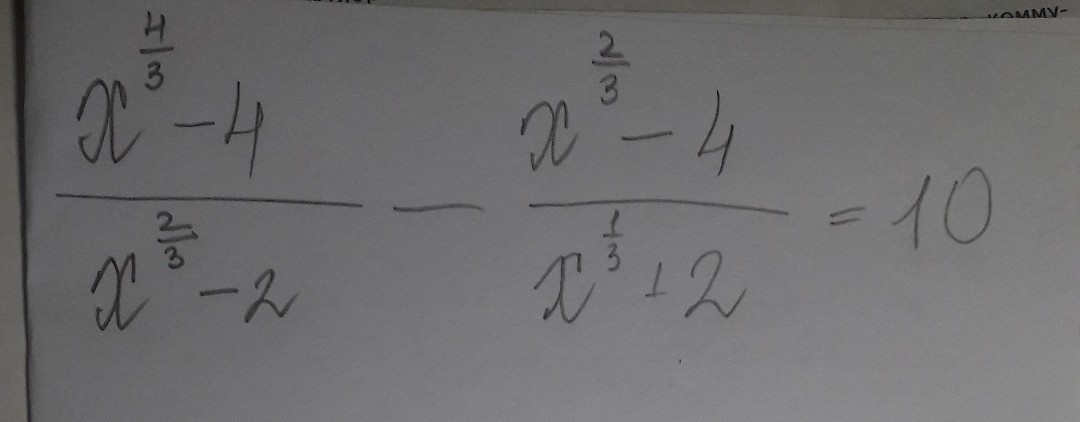 комму-
x^{4/3} - 4 / x^{2/3} - 2 - x^{2/3} - 4 / x^{1/3} + 2 = 10